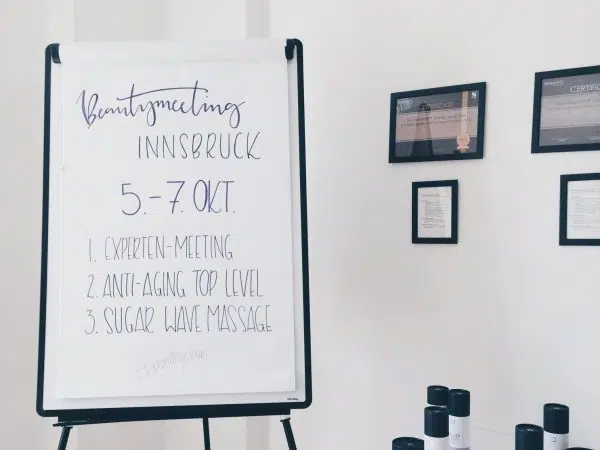 Beautymeeting
INNSBRUCK
5.-7. OKT.
1. EXPERTEN-MEETING
2. ANTI-AGING TOP LEVEL
3. SUGAR WAVE MASSAGE